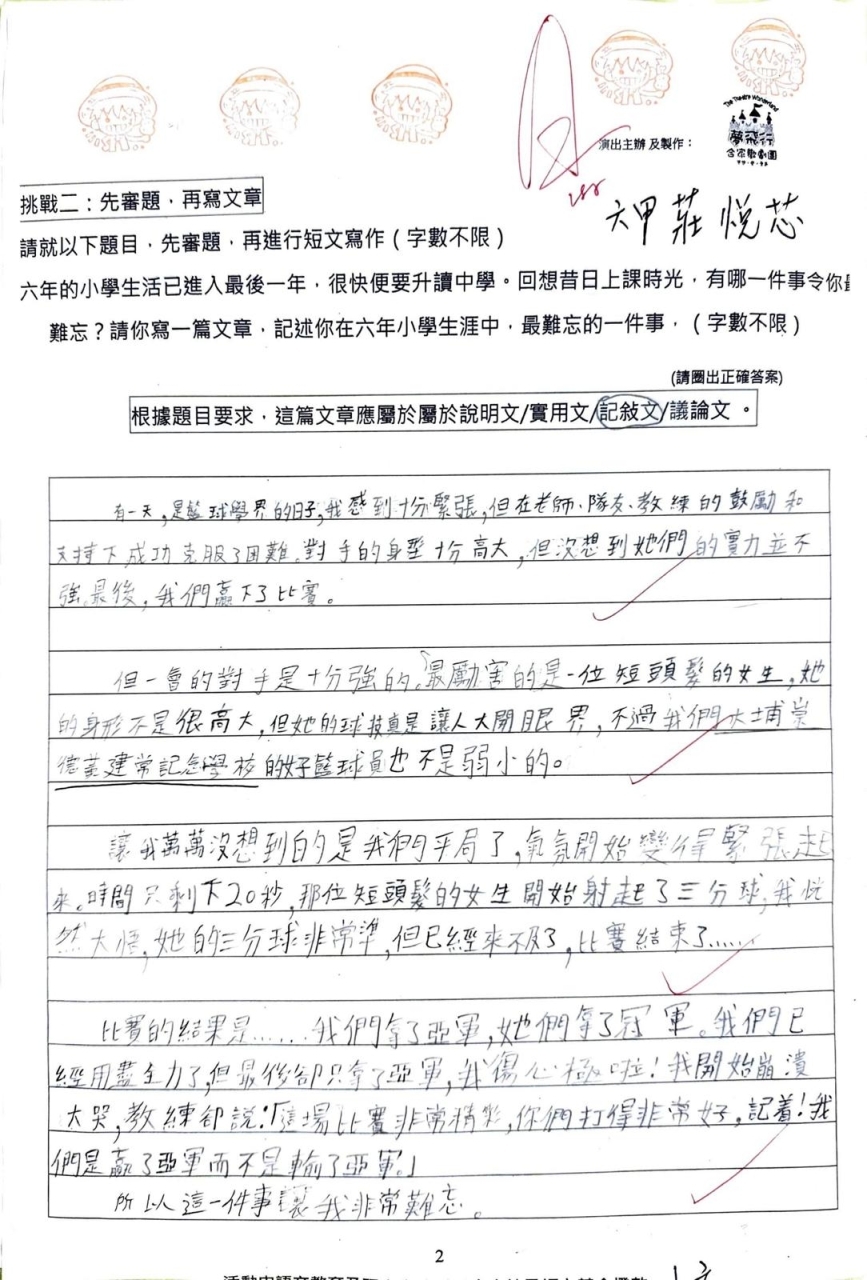 The Theatre Wonderland
夢飛行
合家歡劇團
演出主辦 及製作：
六甲 莊悅芯
挑戰二：先審題，再寫文章
請就以下題目，先審題，再進行短文寫作（字數不限）
六年的小學生活已進入最後一年，很快便要升讀中學。回想昔日上課時光，有哪一件事令你最
難忘？請你寫一篇文章，記述你在六年小學生涯中，最難忘的一件事，（字數不限）
(請圈出正確答案)
根據題目要求，這篇文章應屬於屬於說明文/實用文/記敍文/議論文 。
有一天，是籃球學界的日子，我感到十份緊張，但在老師、隊友、教練的鼓勵和
支持下成功克服了困難。對手的身型十分高大，但沒想到她們的實力並不
強。最後，我們贏下了比賽。
但一會的對手是十分強的。最勵害的是一位短頭髮的女生，她
的身形不是很高大，但她的球技真是讓人大開眼界，不過我們大埔崇
德黃建常記念學校的好籃球員也不是弱小的。
讓我萬萬沒想到的是我們平局了，氣氛開始變得緊張起
來。時間只剩下20秒，那位短頭髮的女生開始射起了三分球，我恍
然大悟，她的三分球非常準，但已經來不及了，比賽結束了……
比賽的結果是……我們拿了亞軍，她們拿了冠軍。我們已
經用盡全力了，但最後卻只拿了亞軍，我傷心極啦！我開始崩潰
大哭，教練卻說：「這場比賽非常精彩，你們打得非常好，記着！我
們是贏了亞軍而不是輸了亞軍。」
所以這一件事讓我非常難忘。
2